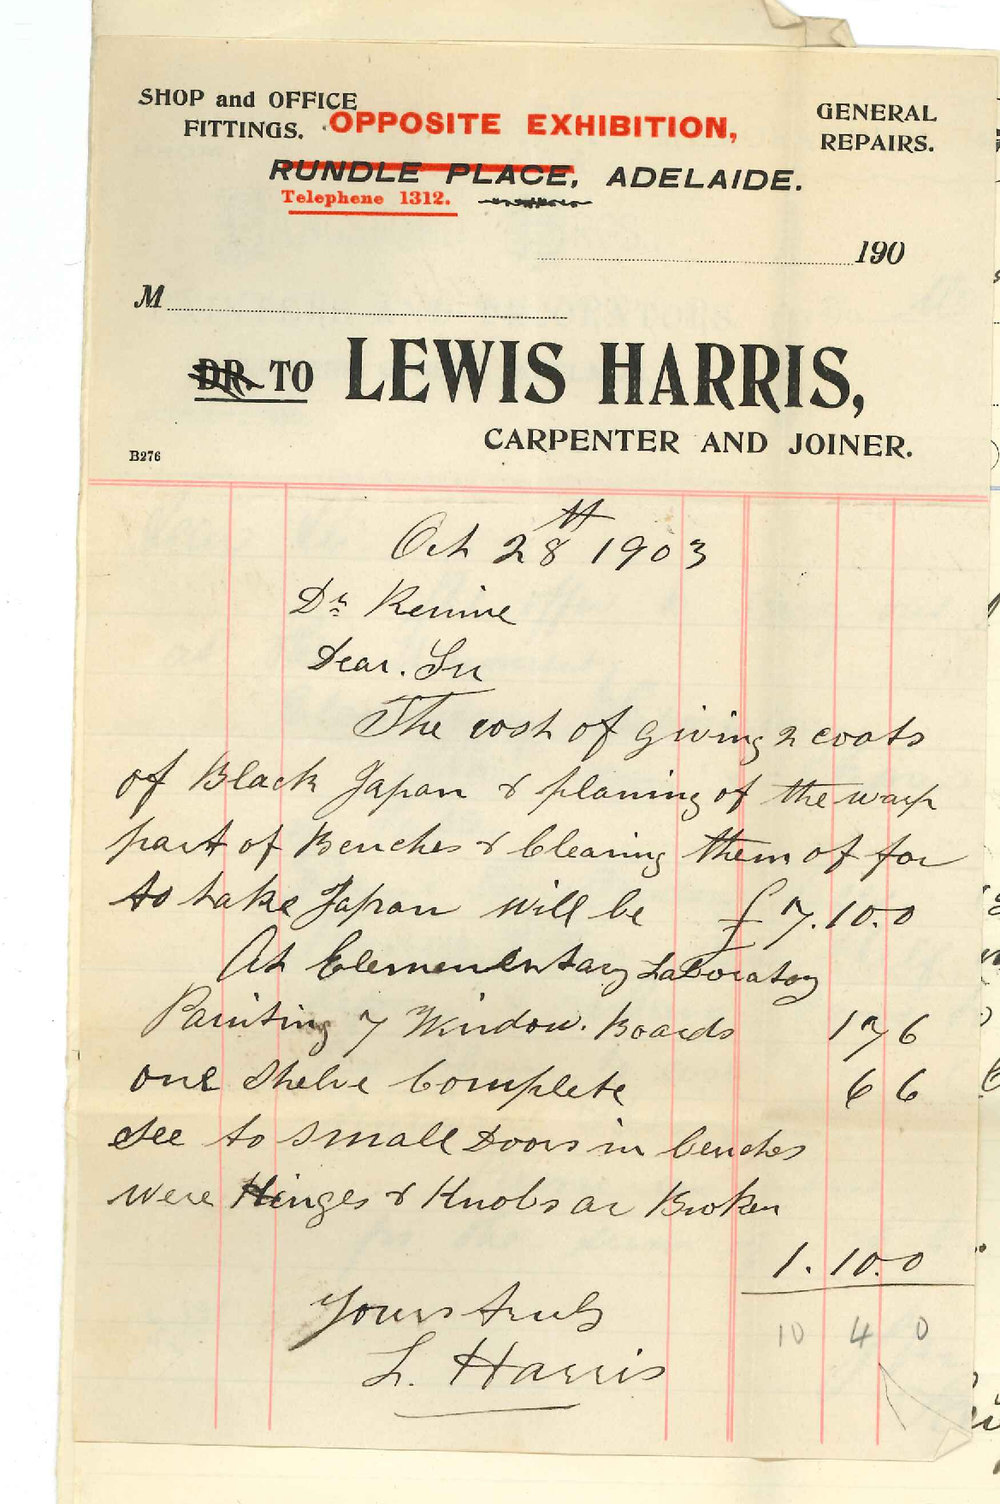 SHOP and OFFICE
FITTINGS.
OPPOSITE EXHIBITION,
GENERAL
REPAIRS.
RUNDLE PLACE, ADELAIDE.
Telephene 1312.
190
M
DR. TO LEWIS HARRIS,
CARPENTER AND JOINER.
B276
Oct 28th 1903
Dr Rennie
Dear. Sir
The cost of giving 2 coats
of Black Japan & planing of the warp
part of Benches & Cleaning them of for
to take Japan will be £7.10.0
At Elementary Laboratory
Painting 7 Window. Boards 17 6
one Shelve Complete 6 6
see to small Doors in benches
were Hinges & Knobs ar Broken
1.10.0
Yours truly
10 4 0
L. Harris